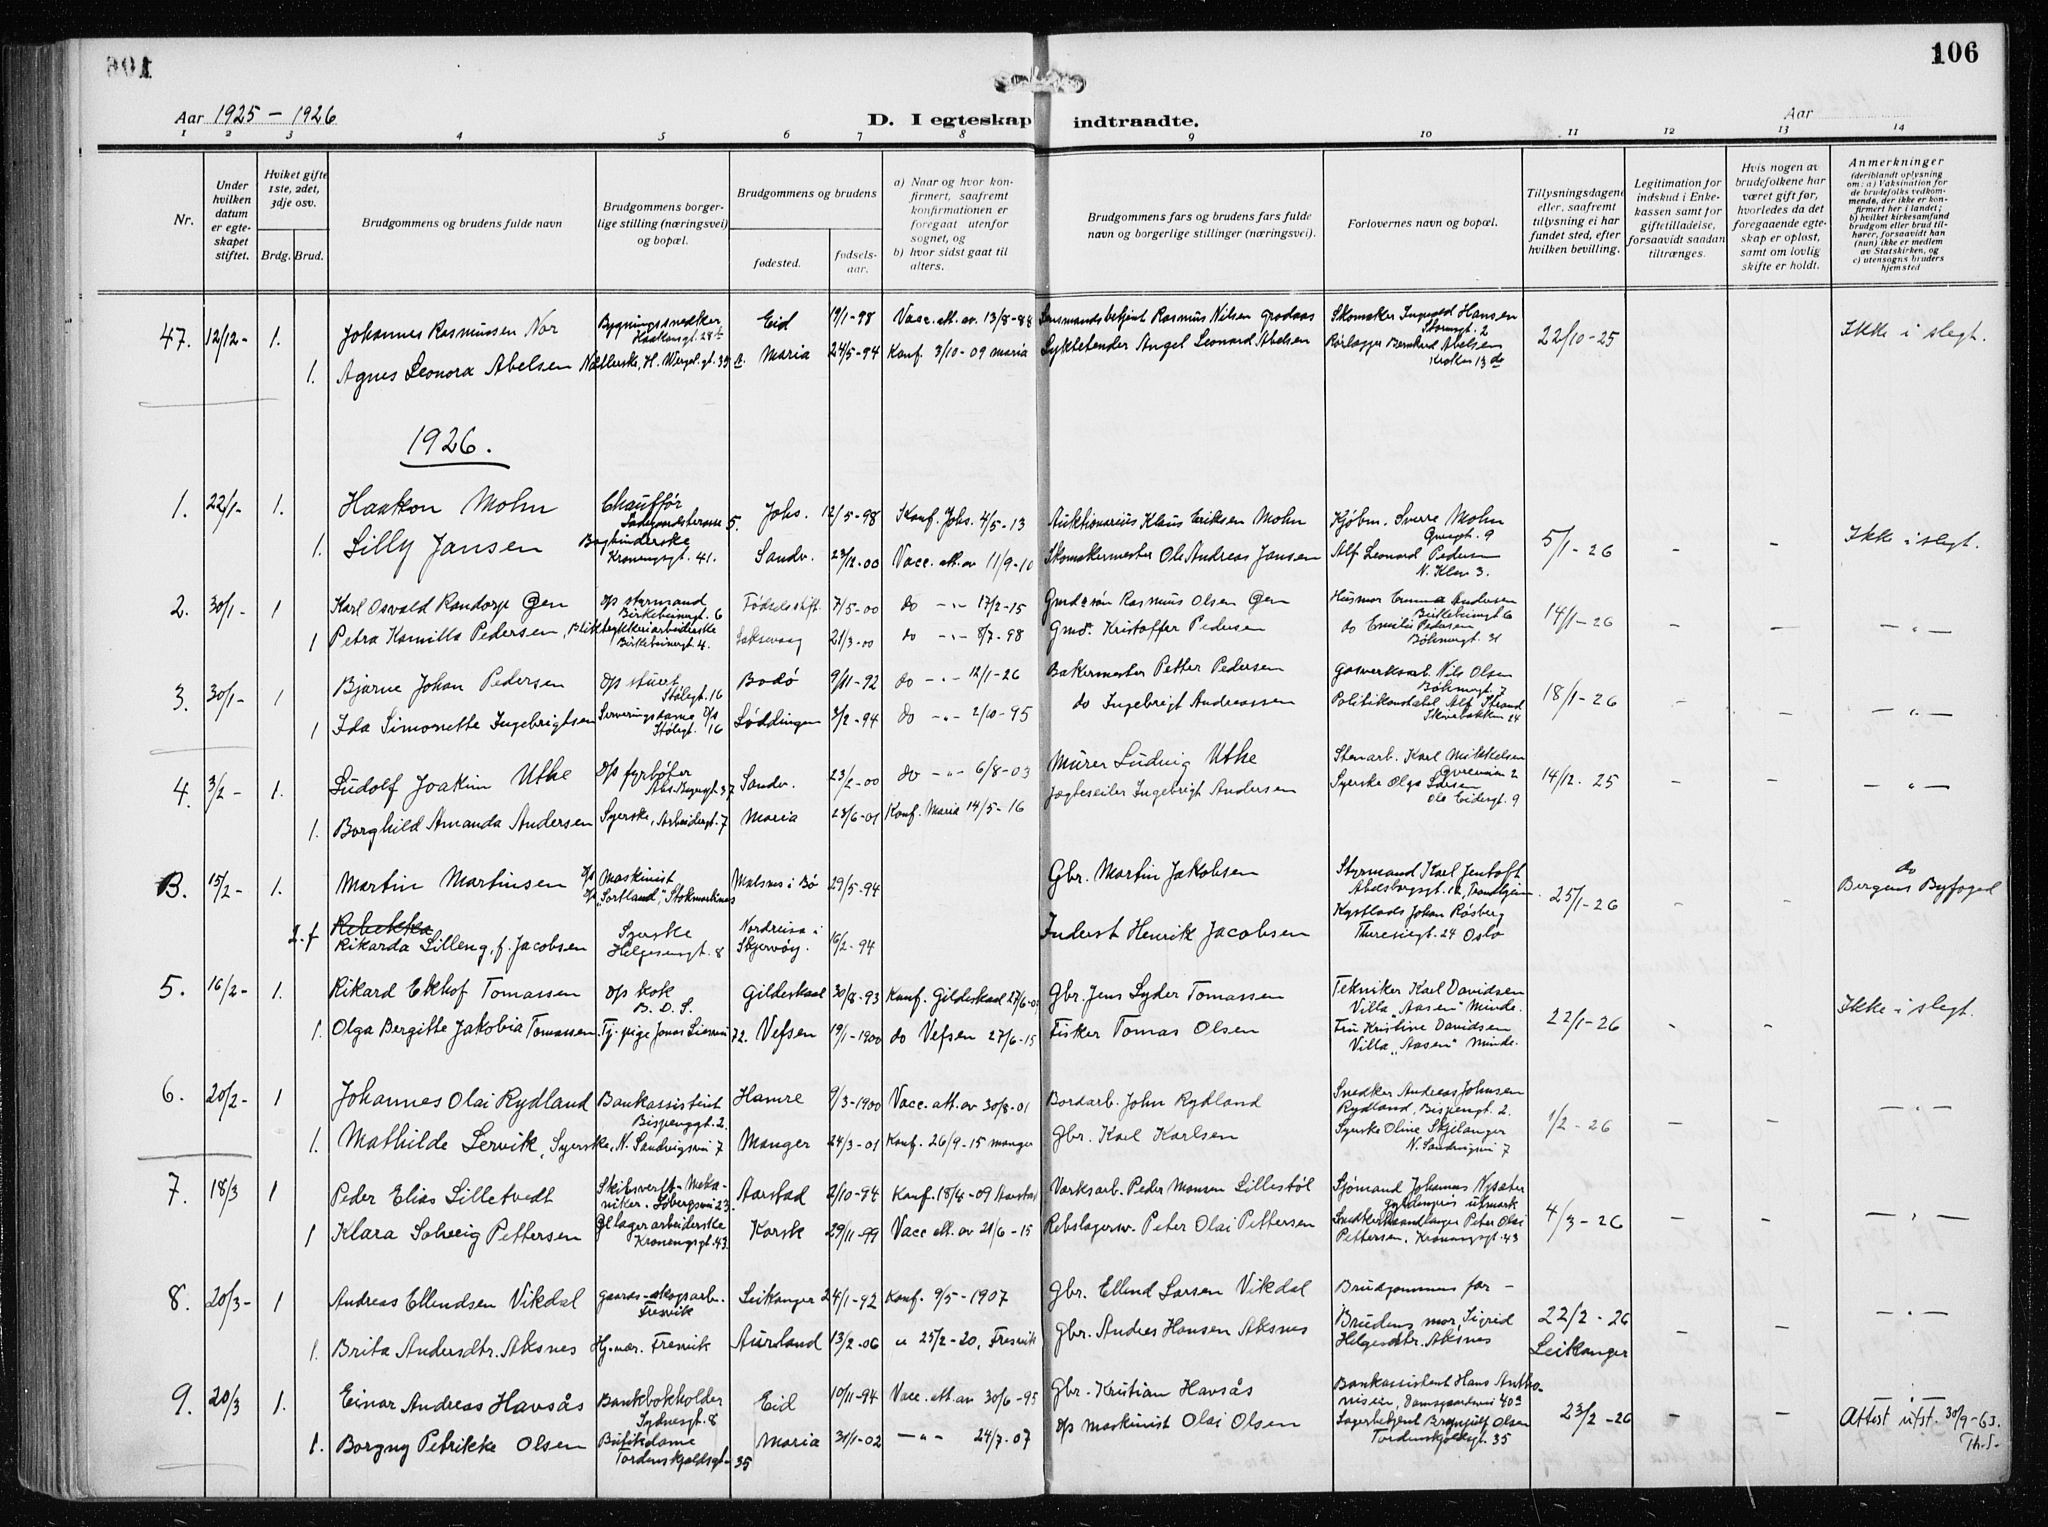 106
Aar 1925 - 1926
D. I egteskap indtraadte.
Aar
1 2 3 4 5 6 7 8 9 10 11 12 13 14
Nr.
Under hvilken datum er egteskapet stiftet.
Hviket gifte 1ste, 2det, 3dje osv.
Brdg. Brud.
Brudgommens og brudens fulde navn
Brudgommens borgerlige stilling (næringsvei) og bopæl.
Brudgommens og brudens
fødested. fødselsaar.
a) Naar og hvor konfirmert, saafremt konfirmationen er foregaat utenfor sognet, og
b) hvor sidst gaat til alters.
Brudgommens fars og brudens fars fulde navn og borgerlige stillinger (næringsvei).
Forlovernes navn og bopæl.
Tillysningsdagene eller, saafremt tillysning ei har fundet sted, efter hvilken bevilling.
Legitimation for indskud i Enkekassen samt for giftetilladelse, forsaavidt saadan tiltrænges.
Hvis nogen av brudefolkene har været gift før, hvorledes da det foregaaende egteskap er opløst, samt om lovlig skifte er holdt.
Anmerkninger (deriblandt oplysning om: a) Vaksination for de brudefolks vedkommende, der ikke er konfirmert her i landet; b) hvilket kirkesamfund brudgom eller brud tilhører, forsaavidt han (hun) ikke er medlem av Statskirken, og c) utensogns bruders hjemsted
47. 12/12- 1. Johannes Rasmussen Nor Bygningssnedker Haakonsgt. 28 Eid 19/1-98 Vacc. att. av 13/8-88 Lensmandsbetjent Rasmus Nilsen Skomaker Ingvald Hansen 22/10-25 Ikke i slegt.
1. Agnes Leonora Abelsen H. Wergel. gt. 35 Maria 24/5-94 Konf. 3/10-09 Maria Lyktetender Angel Leonard Abelsen Rørlægger Bernhard Abelsen
1926.
1. 22/1- 1. Haakon Mohn Chauffør 5. Johs. 12/5-98 Konf. Johs. 4/5-13 Auktionarius Klaus Eriksen Mohn Kjøbm. Sverre Mohn 5/1-26 - - Ikke i slegt.
1. Lilly Jansen Bogbinderske Kronengsgt. 41. Sandv. 23/12-00 Vacc. att. av 11/9-10 Skomakermester Ole Andreas Jansen Alf Leonard Pedersen N. Klev 3.
2. 30/1- 1 Karl Osvald Randorp Gen d/s styrmand Birkebeinergt. 6 Fødselsstift. 7/5-00 do -"- 17/2-15 Rasmus Olsen Gen Husmor Emma Andersen Birkebeinergt 6 14/1-26 - - -"-
1 Petra Kamilla Pedersen, Blikkarbeiderske Birkebeinergt. 4. Laksevaag 21/3-00 do -"- 8/7-98 Kristoffer Pedersen do Emilie Pedersen Bøhmergt. 31
3. 30/1- 1 Bjarne Johan Pedersen d/s stuert Stølegt. 16 Bodø 9/11-92 do -"- 12/1-26 Bakermester Petter Pedersen Gasverksarb. Nils Olsen Bøhmergt. 7 18/1-26 - - -"-
1 Ida Simonette Ingebrigtsen Serveringsdame Stølegt. 16 Lødingen 3/2-94 do -"- 2/10-95 do Ingebrigt Andreassen Politikonstabel Alf Strand Skivebakken 24
4. 3/2- 1. Ludolf Joakim Utke d/s fyrbøter 37 Sandv. 23/2-00 do -"- 6/8-03 Murer Ludvig Utke Stenarb. Karl Mikkelsen 14/12-25 - - -"-
1. Borghild Amanda Andersen Syerske, Arbeidergt. 7 Maria 23/6-01 Konf. Maria 14/5-16 Jægteseiler Ingebrigt Andersen Syerske Olga Larsen Ole Eidesgt. 9
B. 15/2- 1. Martin Martinsen Maskinist d/s "Sortland", Stokmarknes Malnes i Bø 29/5-94 Gbr. Martin Jakobsen Styrmand Karl Jentoft Trondhjem 25/1-26 - - do Bergens Byfoged
2. f Rebekka Rikarda Silleng, f. Jacobsen Syerske Helgesensgt. 8 Nordreisa i Skjervøy. 16/2-94 Inderst Henrik Jacobsen Johan Røsberg Theresiegt. 24 Oslo
5. 16/2- 1. Rikard Ekhof Tomassen d/s kok B. D. S. Gildeskaal 30/8-93 Konf. Gildeskaal 27/6- Gbr. Jens Tomassen Tekniker Karl Davidsen Villa "Aasen" Minde. 22/1-26 - - Ikke i slegt.
1. Olga Bergitte Jakobia Tomassen. Tj. pige Jonas Liesvei 72. Vefsen 19/1-1900 do Vefsen 27/6-15 Fisker Tomas Olsen Fru Kristine Davidsen Villa "Aasen" Minde.
6. 20/2- 1 Johannes Olai Rydland Bankassistent Bispenggt. 2. Hamre 9/3-1900 Vacc. att. av 30/8-01 Bordarb. John Rydland Snedker Andreas Johnsen Rydland, Bispengt. 2. 1/2-26 - - -"-
1. Mathilde Lervik, Syerske, N. Sandvigsvei 7 Manger 24/3-01 Konf. 26/9-15 Manger Gbr. Karl Karlsen Syerske Oline Skjelanger N. Sandvigsvei 7
7. 18/3 1 Peder Elias Lilletvedt Skibsverft-Mekaniker. Løbergsvei 23. Aarstad 2/10-94 Konf. 18/4-09 Aarstad Værksarb. Peder Monsen Lillestøl Sjømand Johannes Nysæter utmark 4/3-26 - - -"-
1 Klara Solveig Pettersen Øllagerarbeiderske Kronengsgt. 43. Korsk 29/11-99 Vacc att. av 21/6-15 Rebslagersv. Peter Olai Pettersen Snedkerhaandlanger Peter Olai Pettersen, Kronengsgt. 43
8. 20/3- 1 Andreas Ellendsen Vikdal Gaards-skogsarb. Fresvik Leikanger 24/1-92 Konf. 9/5-1907 Gbr. Ellend Larsen Vikdal Brudgommens far - 22/2-26 Leikanger - - -"-
1. Brita Andersdtr. Aksnes Hj.vær. Fresvik Aurland 13/2-06 " 25/2-20, Fresvik Gbr. Andres Hansen Aksnes Brudens mor, Sigrid Helgesdtr. Aksnes
9. 20/3 1. Einar Andreas Havsås Bankbokholder Sydnesgt. 8 Eid 10/11-94 Vacc. att. av 30/6-95 Gbr. Kristian Havsås Bankassistent Hans Anthonisen, Damsgaardsvei 40a 23/2-26 - - Attest utst. 30/9-63. Th. S.
1. Borgny Petrikke Olsen Butikdame Tordenskjoldsgt- 35 Maria 31/1-02 -"- 24/7-07 d/s Maskinist Olai Olsen Lagerbetjent Brynjulf Olsen Tordenskjoldsgt. 35